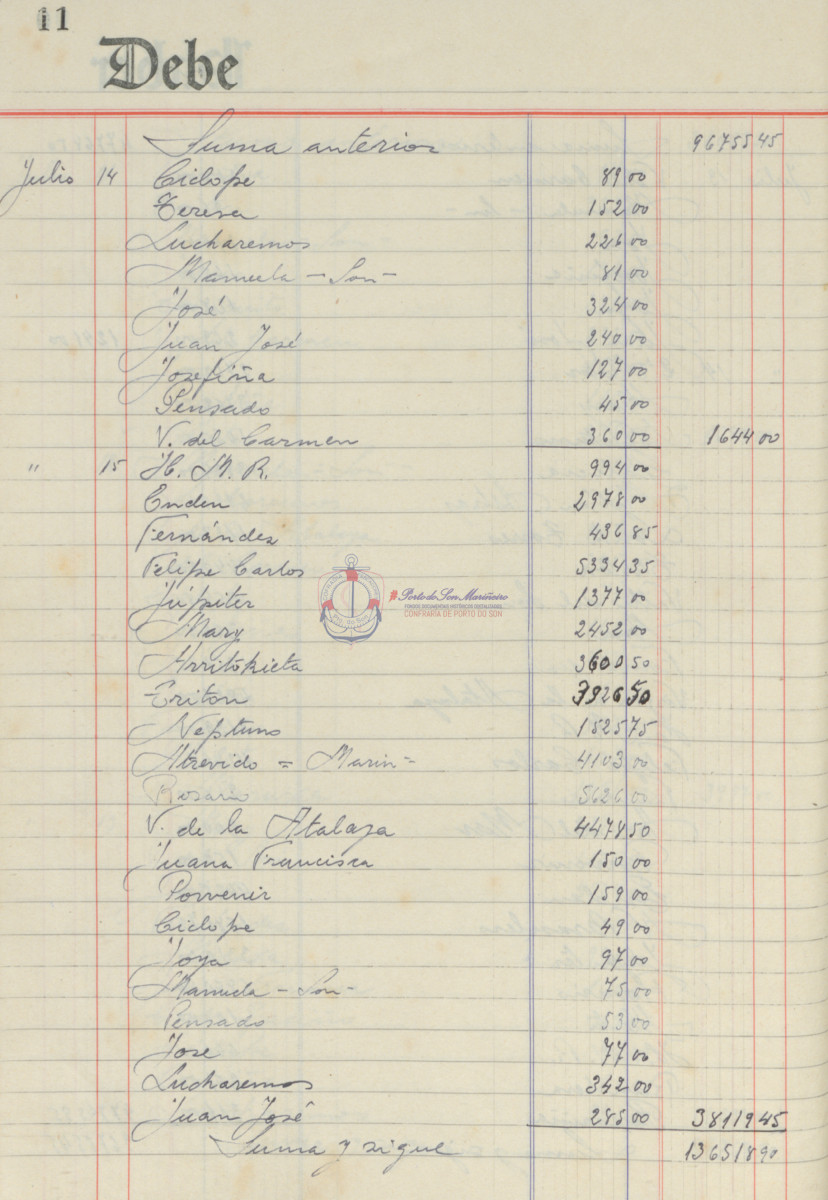 11
Debe
Suma anterior 96755 45
Julio 14 Ciclope 89 00
Teresa 152 00
Lucharemos 226 00
Manuela - Son - 81 00
José 324 00
Juan José 240 00
Josefiña 127 00
Pensado 45 00
V. del Carmen 360 00 1644 00
" 15 H. M. R. 994 00
Enden 2978 00
Fernández 436 85
Felipe Carlos 5334 35
Júpiter 1377 00
Mary 2452 00
Arritokieta 3600 50
Triton 3926 50
Neptuno 1525 75
Atrevido = Marin = 4103 00
Rosario 5626 00
V. de la Atalaya 4478 50
Juana Francisca 150 00
Porvenir 159 00
Ciclope 49 00
Joya 97 00
Manuela - Son - 75 00
Pensado 53 00
Jose 77 00
Lucharemos 342 00
Juan José 285 00 38119 45
Suma y sigue 136518 90
#Porto do Son Mariñeiro
FONDOS DOCUMENTAIS HISTÓRICOS DIXITALIZADOS
CONFRARÍA DE PORTO DO SON